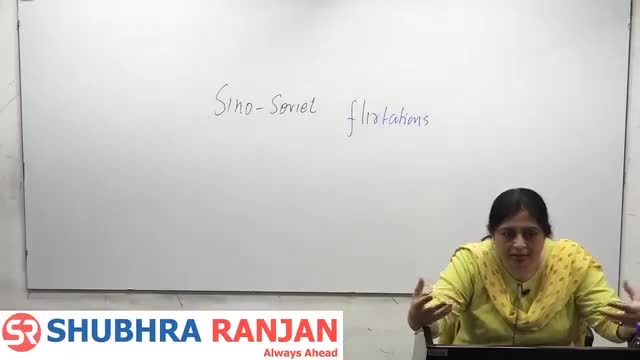 Sino-Soviet flirtations
SR SHUBHRA RANJAN
Always Ahead